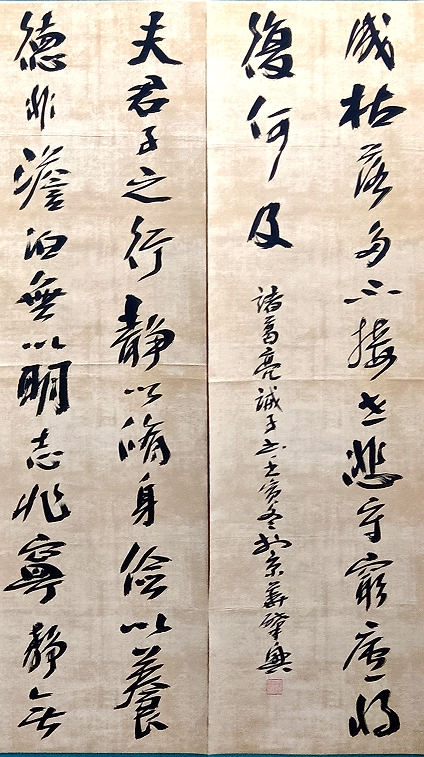 夫君子之行靜以脩身儉以養
德非澹泊無以明志非寧靜無
成枯落多不接世悲守窮廬將
復何及
諸葛亮誡子書壬寅冬於京華肇興